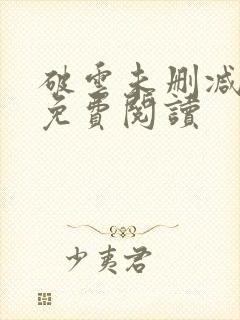 破雲未删减
免費閱讀
少夷君